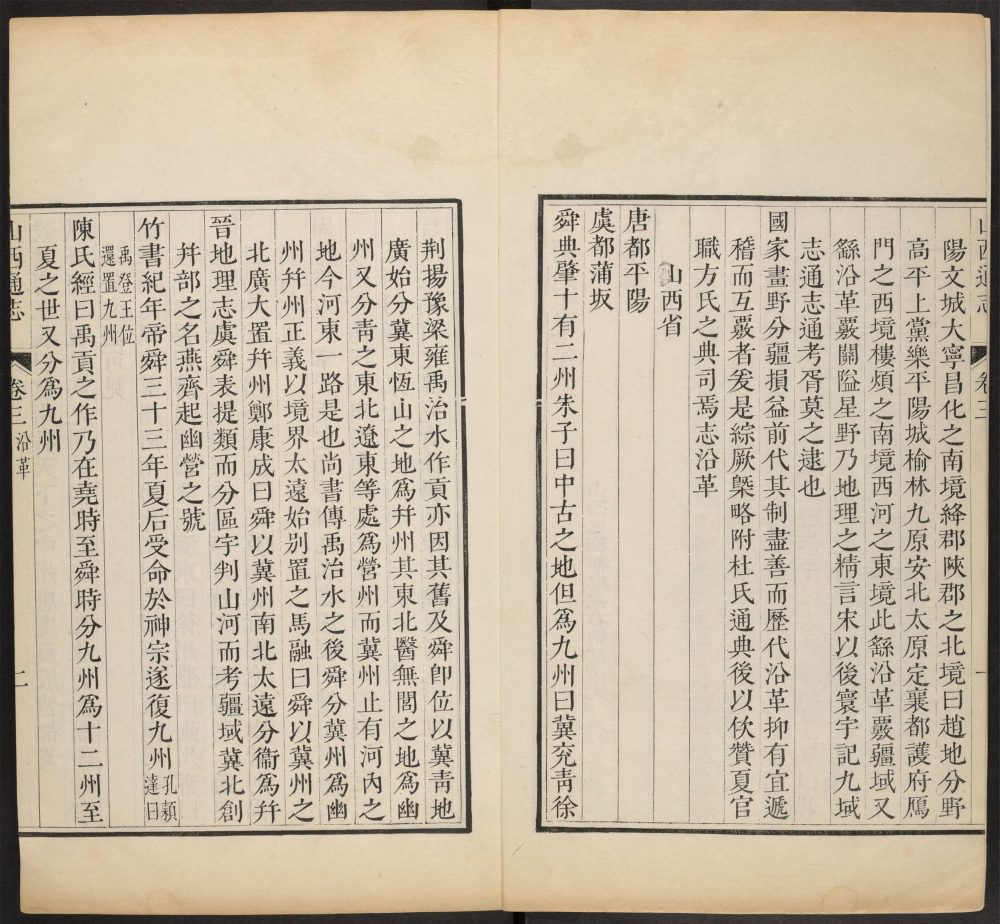 山西通志 卷三 一
陽文城大寧昌化之南境絳郡陝郡之北境曰趙地分野
高平上黨樂平陽城榆林九原安北太原定襄都護府鴈
門之西境樓煩之南境西河之東境此繇沿革覈疆域又
繇沿革覈關隘星野乃地理之精言宋以後寰宇記九域
志通志通考胥莫之逮也
國家畫野分疆損益前代其制盡善而歷代沿革抑有宜遞
稽而互覈者爰是綜厥槩略附杜氏通典後以佽贊夏官
職方氏之典司焉志沿革
山西省
唐都平陽
虞都蒲坂
舜典肇十有二州朱子曰中古之地但爲九州曰冀兗青徐
荆揚豫梁雍禹治水作貢亦因其舊及舜卽位以冀青地
廣始分冀東恆山之地爲幷州其東北醫無閭之地爲幽
州又分青之東北遼東等處爲營州而冀州止有河內之
地今河東一路是也尚書傳禹治水之後舜分冀州爲幽
州幷州正義以境界太遠始别置之馬融曰舜以冀州之
北廣大置幷州鄭康成曰舜以冀州南北太遠分衞爲幷
晉地理志虞舜表提類而分區宇判山河而考疆域冀北創
幷部之名燕齊起幽營之號
竹書紀年帝舜三十三年夏后受命於神宗遂復九州孔穎
達曰
禹登王位
還置九州
陳氏經曰禹貢之作乃在堯時至舜時分九州爲十二州至
夏之世又分爲九州
山西通志 卷三 沿革 二